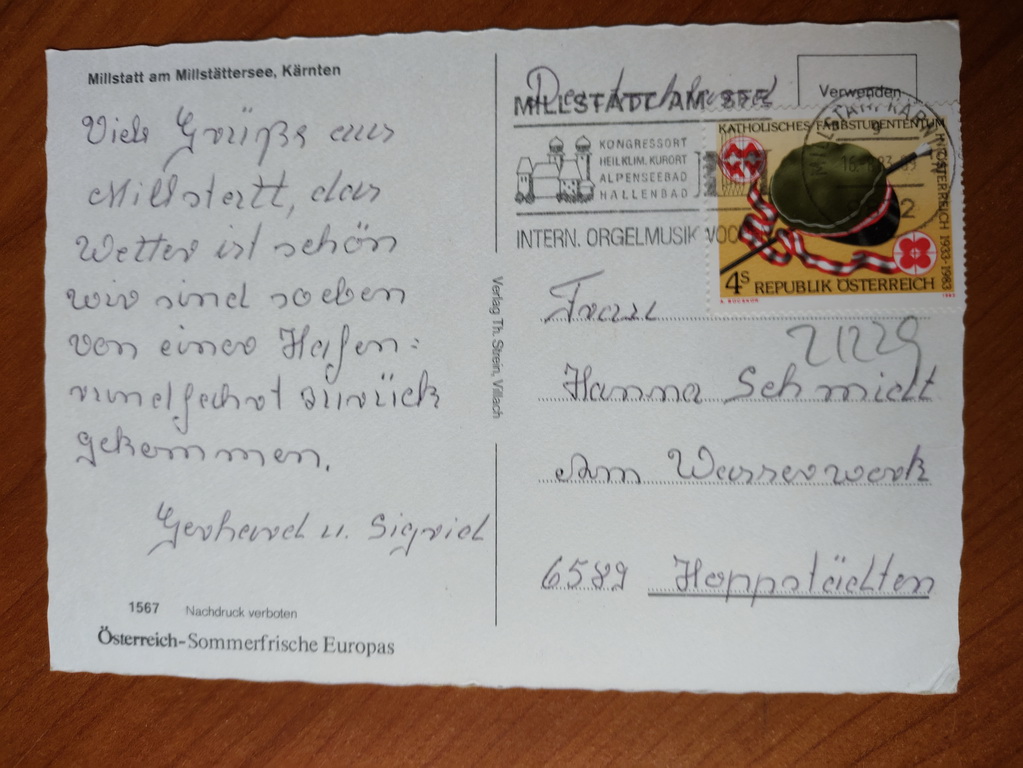 Millstatt am Millstättersee, Kärnten
Viele Grüße aus
Millstatt, das
Wetter ist schön
wir sind soeben
von einer Hafen:
rundfahrt zurück
gekommen.
Gerhard u. Sigrid
1567 Nachdruck verboten
Österreich-Sommerfrische Europas
Verlag Th. Strein, Villach
Deutschland
MILLSTATT AM SEE
KONGRESSORT
HEILKLIM. KURORT
ALPENSEEBAD
HALLENBAD
INTERN. ORGELMUSIK
Verwenden
KATHOLISCHES FARBSTUDENTENTUM
IN ÖSTERREICH 1933-1983
4S REPUBLIK ÖSTERREICH
Frau
21229
Hanna Schmidt
Am Wasserwerk
6589 Hoppstädten